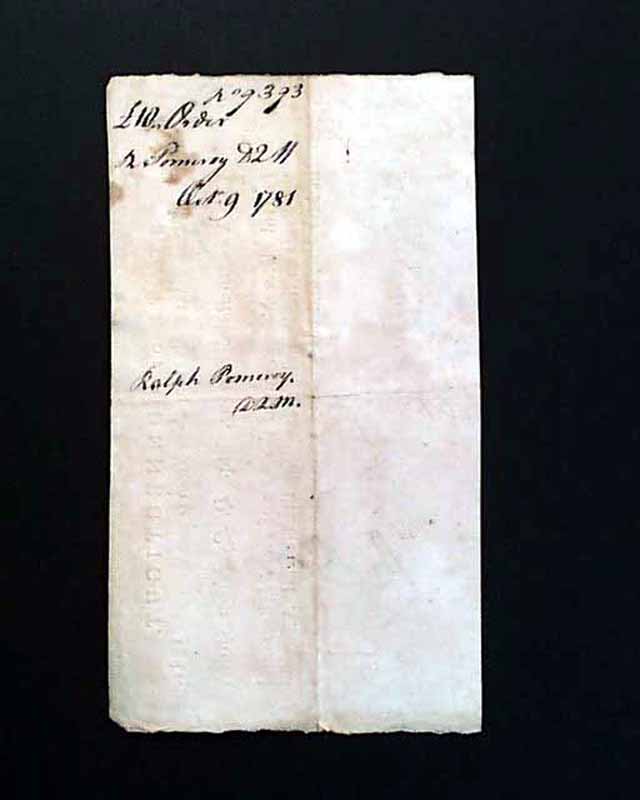 No 9393
£10 Order
R Pomeroy D2M
Oct. 9 1781
Ralph Pomeroy.
D2M.